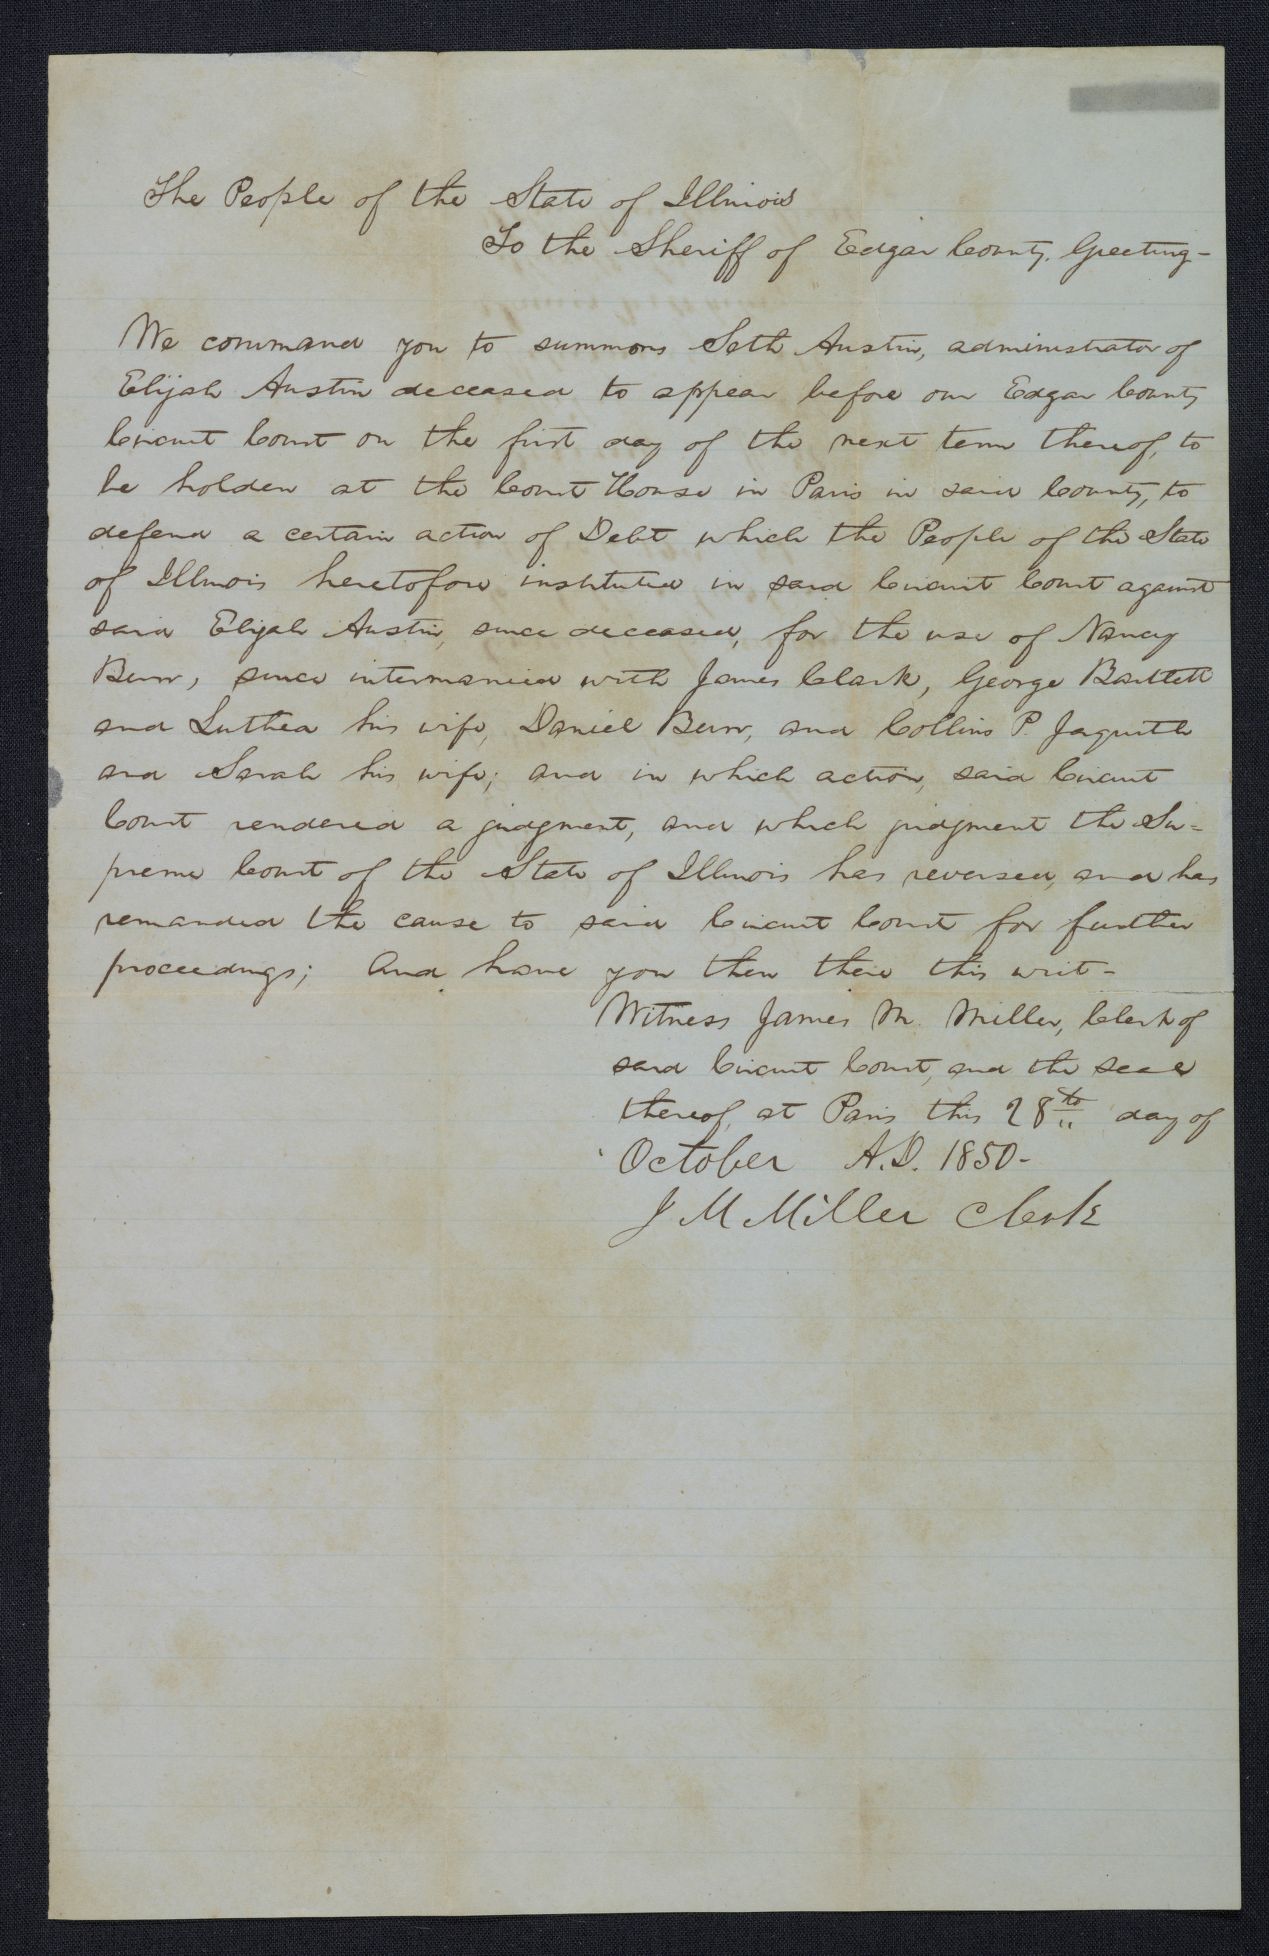 The People of the State of Illinois
To the Sheriff of Edgar County, Greeting-
We command you to summons Seth Austin, administrator of
Elijah Austin deceased to appear before our Edgar County
Circuit Court on the first day of the next term thereof, to
be holden at the Court House in Paris in said County, to
defend a certain action of Debt which the People of the State
of Illinois heretofore instituted in said Circuit Court against
said Elijah Austin, since deceased, for the use of Nancy
Burr, since intermarried with James Clark, George Bartlett
and Luthea his wife, Daniel Burr, and Collins P. Jaquith
and Sarah his wife; and in which action, said Circuit
Court rendered a judgment, and which judgment the Su=
preme Court of the State of Illinois has reversed, and has
remanded the cause to said Circuit Court for further
proceedings; And have you then there this writ-
Witness James M. Miller, Clerk of
said Circuit Court, and the seal
thereof, at Paris this 28th day of
October A.D. 1850-
J M Miller Clerk